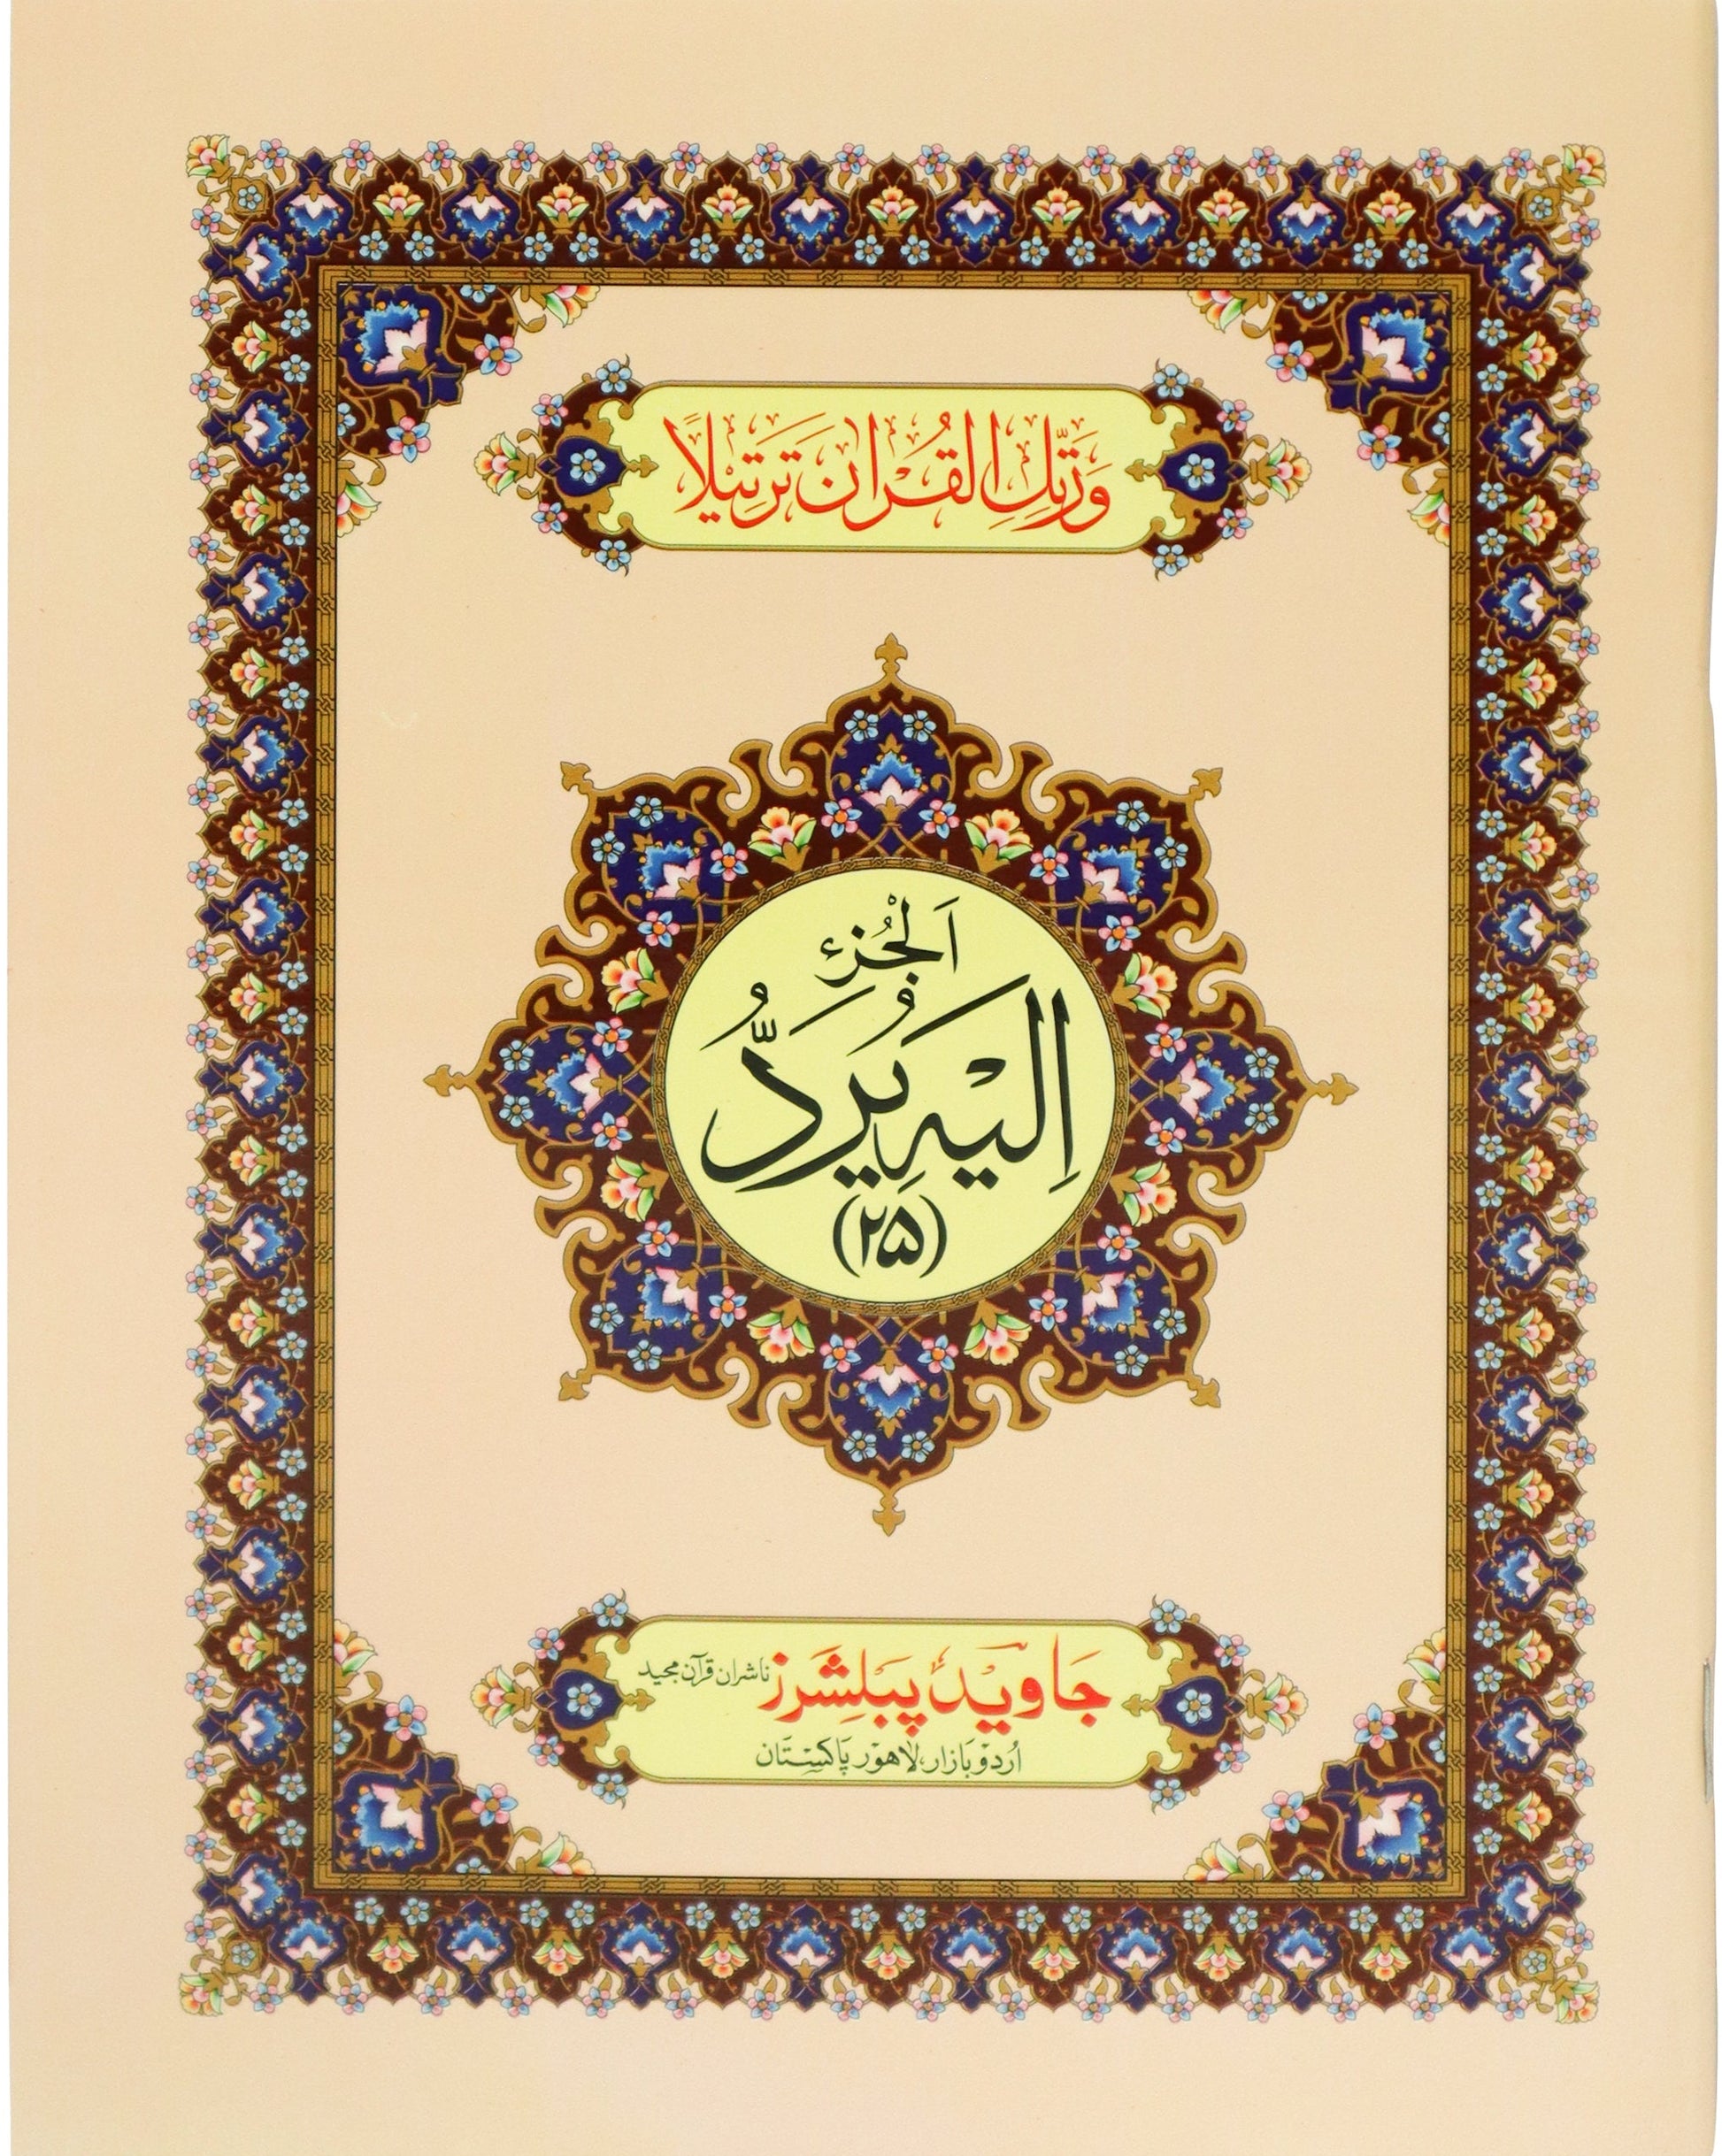 وَرَتِّلِ الْقُرْاٰنَ تَرْتِيْلًا
اَلْجُزْءُ
اِلَيْهِ يُرَدُّ
(۲۵)
جَاوِيْد پَبلِشَرز ناشران قرآن مجید
اُردو بَازار، لاهور پَاکسْتَان